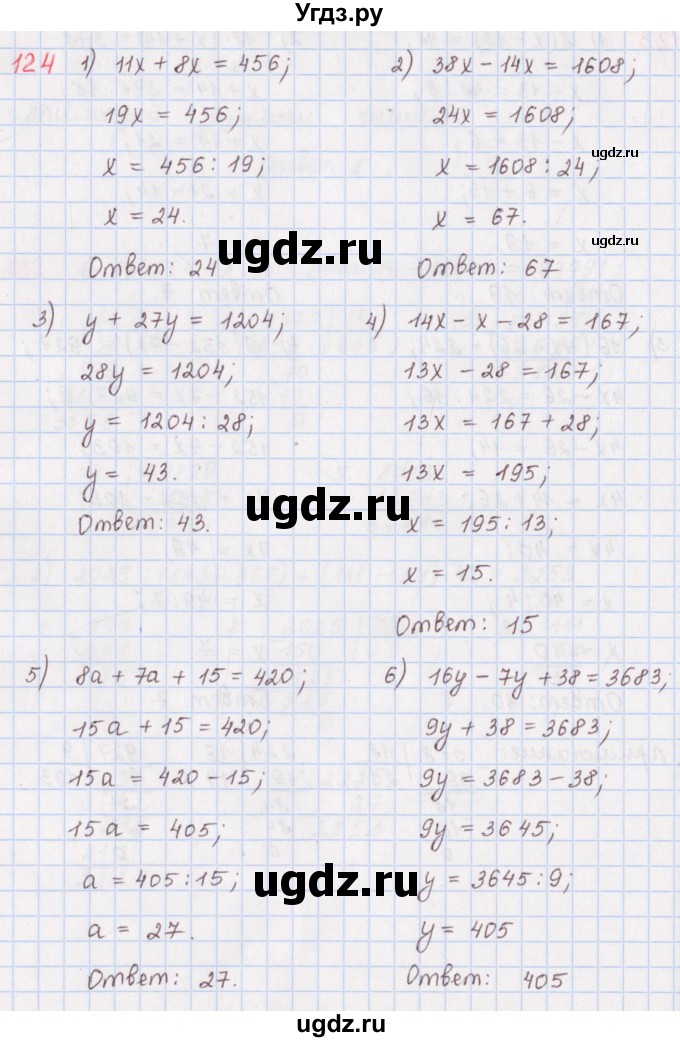 Угдз.ру
124
1) 11x + 8x = 456;
19x = 456;
x = 456 : 19;
x = 24.
Ответ: 24
2) 38x - 14x = 1608;
ugdz.ru
24x = 1608;
ugdz.ru
x = 1608 : 24;
x = 67.
ugdz.ru
ugdz.ru
Ответ: 67
3) y + 27y = 1204;
28y = 1204;
y = 1204 : 28;
y = 43.
Ответ: 43.
4) 14x - x - 28 = 167;
13x - 28 = 167;
13x = 167 + 28;
ugdz.ru
13x = 195;
x = 195 : 13;
x = 15.
Ответ: 15
5) 8a + 7a + 15 = 420;
15a + 15 = 420;
15a = 420 - 15;
15a = 405;
a = 405 : 15;
a = 27.
Ответ: 27.
6) 16y - 7y + 38 = 3683;
9y + 38 = 3683;
9y = 3683 - 38;
9y = 3645;
ugdz.ru
y = 3645 : 9;
y = 405
Ответ: 405
ugdz.ru